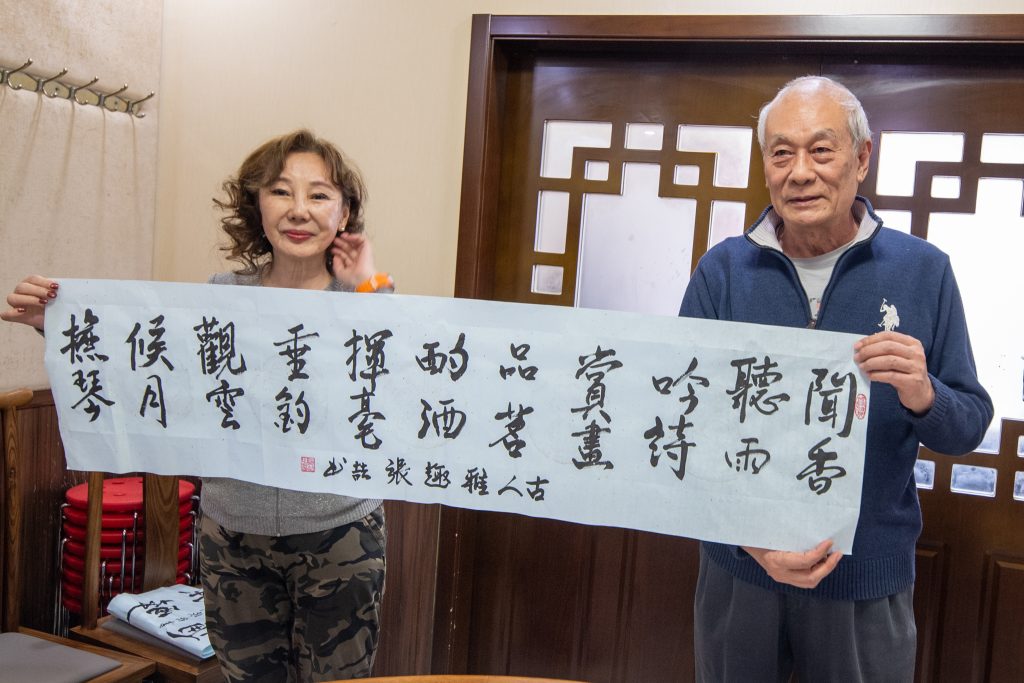 聞香
聽雨
吟詩
賞畫
品茗
酌酒
揮毫
垂釣
觀雲
候月
撫琴
古人雅趣 張 书